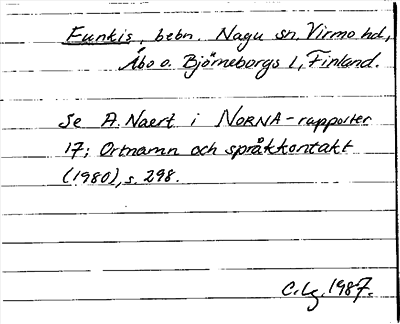 Funkis, bebn. Nagu sn, Virmo hd,
Åbo o. Björneborgs l, Finland.
Se A. Naert i NORNA-rapporter
17; Ortnamn och språkkontakt
(1980), s. 298.
C. Lg. 1987.